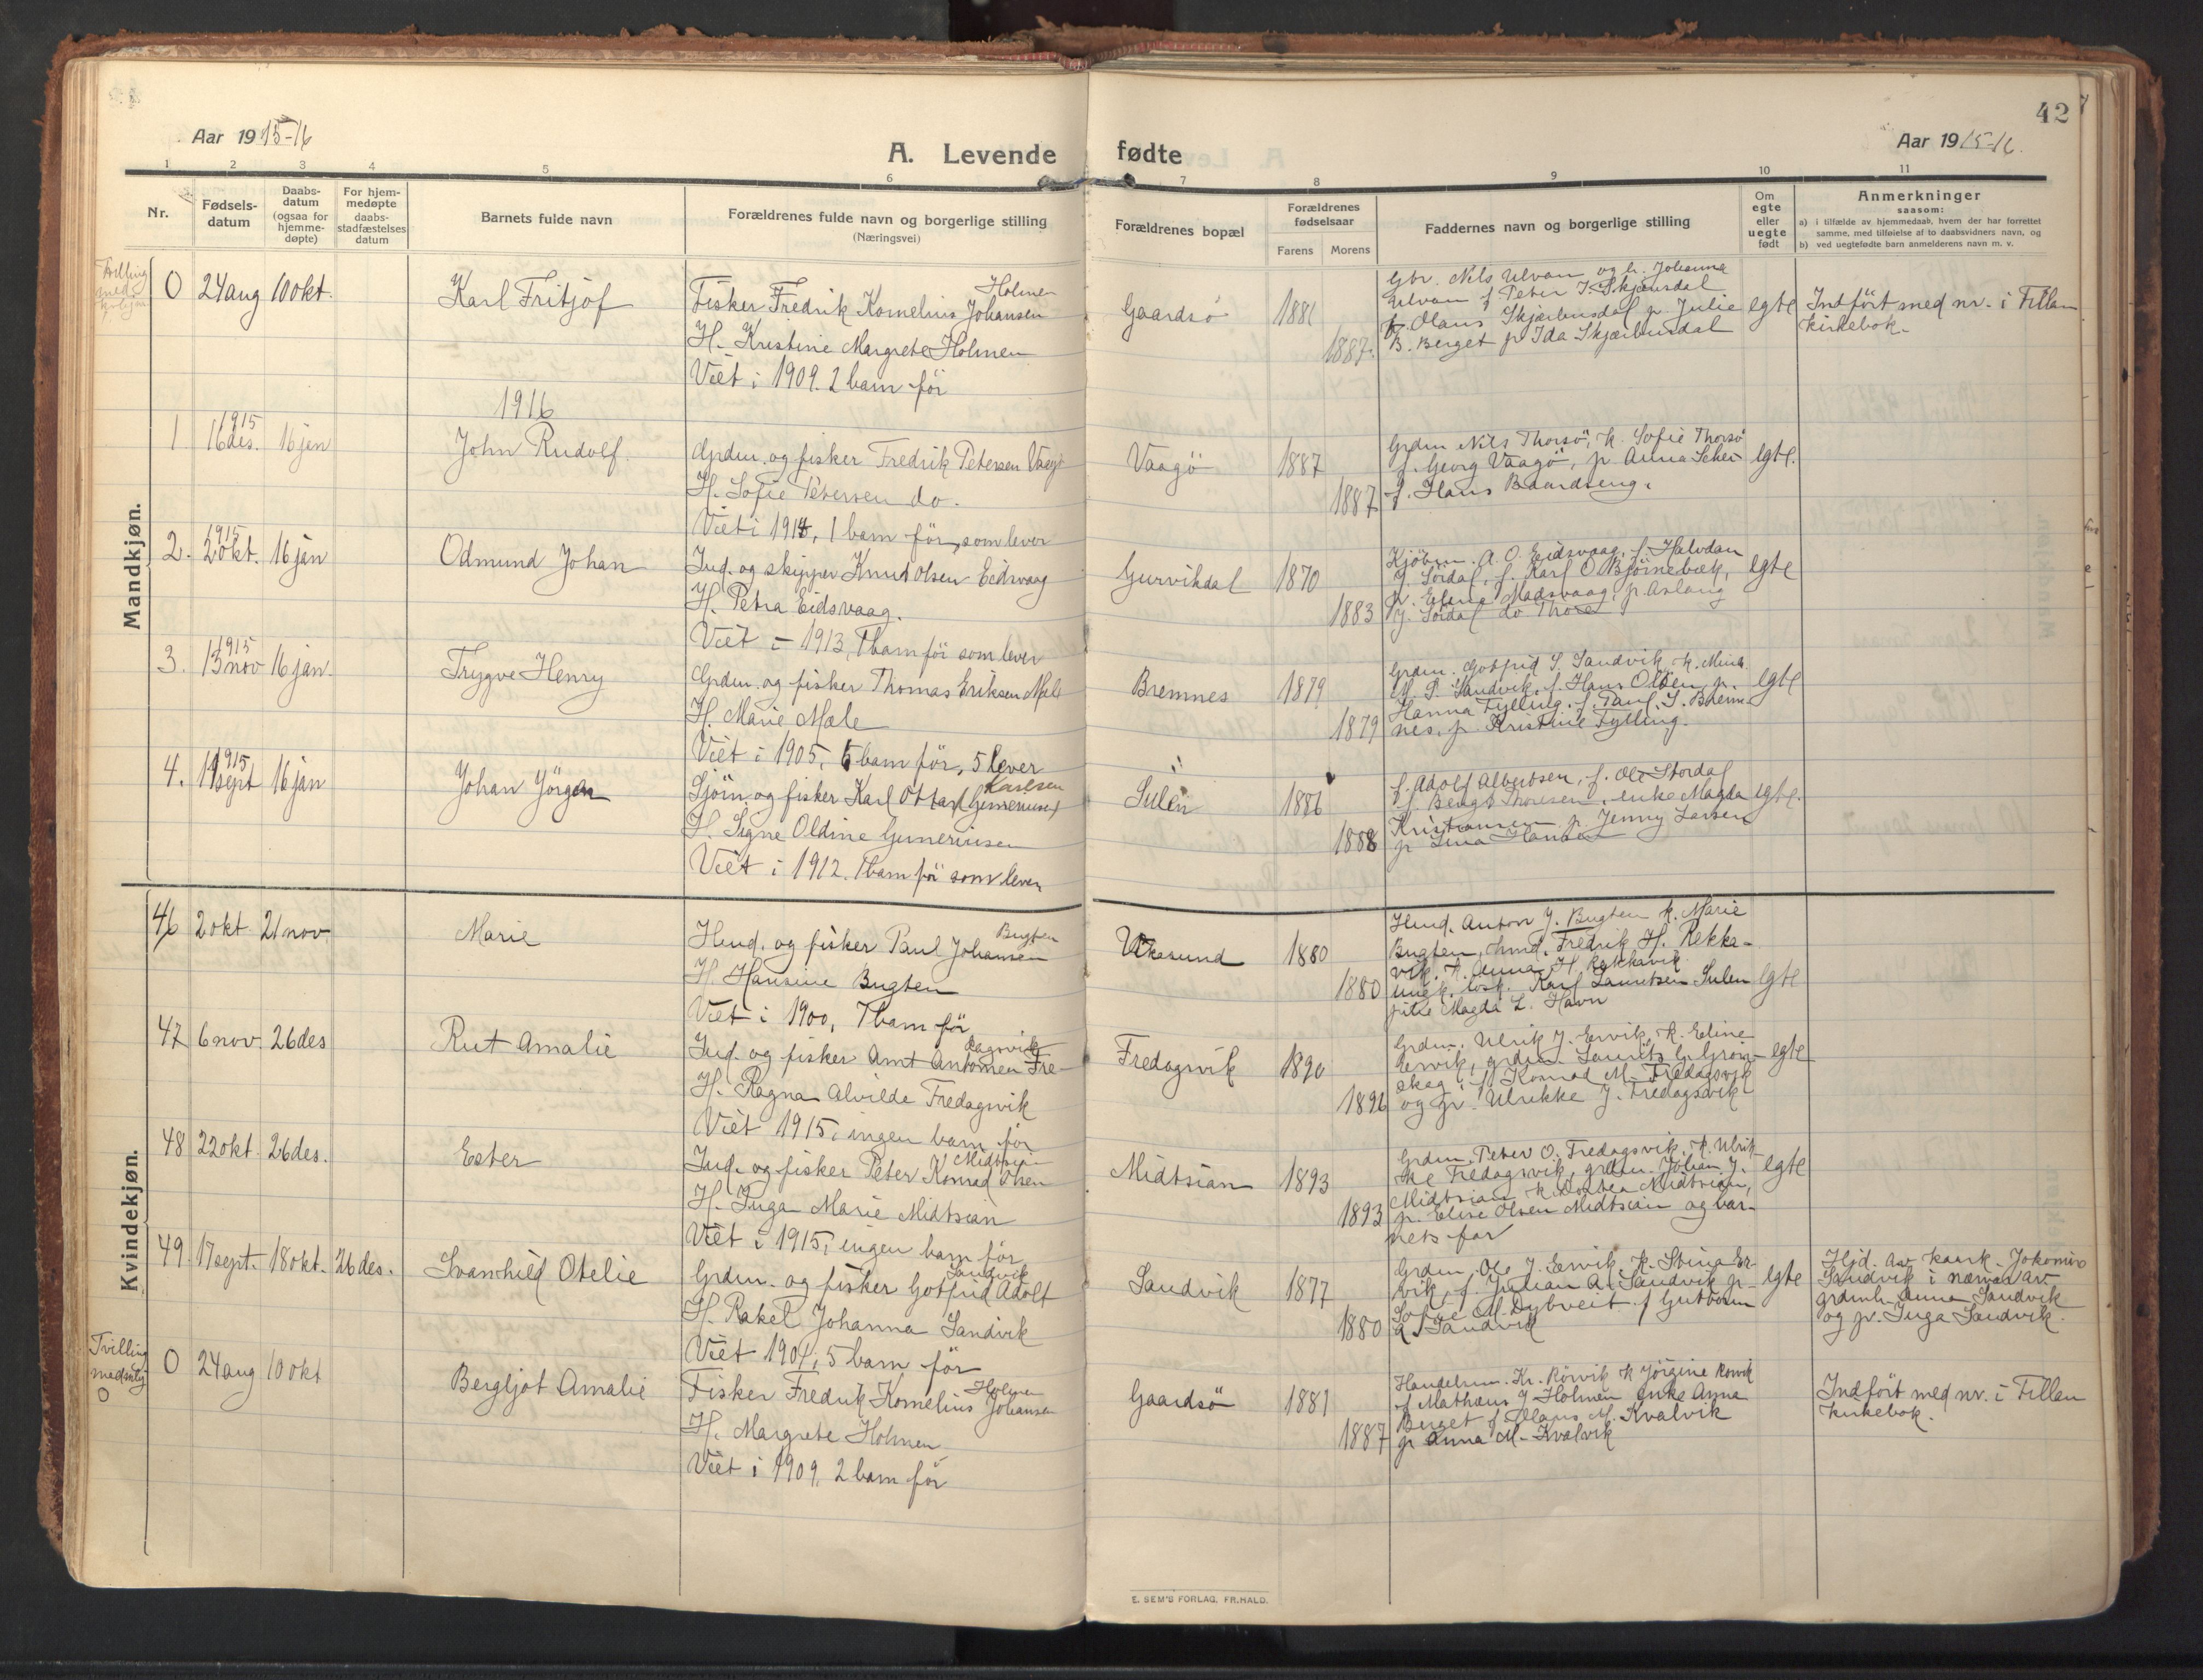 42
Aar 1915-16
A. Levende fødte
Aar 1915-16.
1 2 3 4 5 6 7 8 9 10 11
Nr.
Fødsels-
datum
Daabs-
datum
(ogsaa for
hjemme-
døpte)
For hjem-
medøpte
daabs-
stadfæstelses
datum
Barnets fulde navn
Forældrenes fulde navn og borgerlige stilling
(Næringsvei)
Forældrenes bopæl
Forældrenes
fødselsaar
Farens Morens
Faddernes navn og borgerlige stilling
Om
egte
eller
uegte
født
Anmerkninger
saasom:
a) i tilfælde av hjemmedaab, hvem der har forrettet
samme, med tilføielse af to daabsvidners navn, og
b) ved uegtefødte barn anmelderens navn m. v.
Mandkjøn.
Tvilling
med
0 24 aug 10 okt. Karl Fritjof
Holmen
Fisker Fredrik Kornelius Johansen
H. Kristine Margrete Holmen
Viet i 1909. 2 barn før
Gaardsö 1881
1887.
Gbr. Nils Ulvan og h. Johanna
Ulvan f. Peter J. Skjærbusdal
f. Olaus Skjærbusdal p. Julie
B. Berget p Ida Skjærbusdal
egte
Indført med nr. i Fillan
kirkebok.
1916
1915
1 16 des. 16 jan John Rudolf.
Grdm. og fisker Fredrik Petersen Vaagö
H. Sofie Petersen do.
Viet i 1914, 1 barn før, som lever
Vaagö 1887
1887
Grdm Nils Thorsö, k. Sofie Thorsö
f. Georg Vaagö, p. Anna Schei
f. Hans Baardseng.
egte.
1915
2. 2 okt. 16 jan Odmund Johan
Ind. og skipper Knut Olsen Eidsvaag
H. Petra Eidsvaag.
Viet i 1913, 1 barn før som lever
Gurvikdal 1870
1883
Kjöbm. A. O. Eidsvaag, f. Halvdan
J. Sördal, f. Karl O. Bjørnebæk,
p. Elena Madsvaag, p. Aslaug
J. Sördal do Thore
egte
1915
3. 13 nov 16 jan. Trygve Henry
Grdm. og fisker Thomas Eriksen Mæle
H. Marie Mæle
Viet i 1905, 6 barn før, 5 lever
Bremnes 1879
1879
Grdm. Gotfrid S. Sandvik, k. Mina
M. S. Sandvik, f. Hans Olsen, p.
Hanna Fylling, f. Paul J. Brem-
nes, p. Kristine Fylling.
egte
1915
4. 11 sept 16 jan Johan Jörgen
Karlsen
Sjöm. og fisker Karl Ottar Guneriusen
H. Signe Oldine Guneriusen
Viet i 1912. 1 barn før som lever
Sulen 1886
1888
f. Adolf Albertsen, f. Ole Stordal
f. Bengt Thoresen, enke Magda
Kristiansen p. Jenny Larsen
p Lina Hansen
egte.
Kvindekjøn.
46 2 okt 21 nov Marie
Bugten
Hmd. og fisker Paul Johansen
H. Hansine Bugten
Viet i 1900, 7 barn før
Ulvesund 1880
1880
Hmd. Anton J. Bugten k. Marie
Bugten, hmd. Fredrik H. Rekka-
vik, k. Anna H. Rekkavik
ungk. losk. Karl Lauritsen Sulen
pike Magda L. Havn
egte
47 6 nov. 26 des Rut Amalie
dagsvik
Ind. og fisker Arnt Antonsen Fre-
H. Ragna Alvilde Fredagsvik
Viet 1915, ingen barn før
Fredagsvik 1890
1896
Grdm. Ulrik J. Ervik, k. Eline
Ervik, grdm. Laurits G. Grøn-
skag, f. Konrad M. Fredagsvik
og p. Ulrikke J. Fredagsvik
egte
48 22 okt. 26 des. Ester
Midtsian
Ind. og fisker Peter Konrad Olsen
H. Inga Marie Midtsian
Viet i 1915, ingen barn før
Midtsian 1893
1893
Grdm. Peter O. Fredagsvik, k. Ulrik-
ke Fredagsvik, grdm. Johan J.
Midtsian k. Dortea Midtsian,
p. Elise Olsen Midtsian og bar-
nets far
egte
49. 17 sept. 18 okt. 26 des. Svanhild Otelie
Sandvik
Grdm. og fisker Gotfrid Adolf
H. Rakel Johanna Sandvik
Viet 1901, 5 barn før
Sandvik 1877
1880
Grdm. Ole J. Ervik, k. Stina Er-
vik, f. Julian A. Sandvik p.
Sofie M. Dybveit f. Gutborm
A. Sandvik
egte
Hjd. av kaark. Jokomine
Sandvik i nærvær av
grdmh. Anna Sandvik
og p. Inga Sandvik.
Tvilling
med
0
0 24 aug 10 okt Bergljot Amalie
Holmen
Fisker Fredrik Kornelius Johansen
H. Margrete Holmen
Viet i 1909, 2 barn før
Gaardsö 1881
1887
Handelsm. Kr. Rörvik k Jörgine Rörvik
f Mathæus J Holmen Enke Anna
Berget f Olaus M. Kvalvik
p Anna M. Kvalvik
Indført med nr. i Fillan
kirkebok.
E. SEM'S FORLAG, FR.HALD.